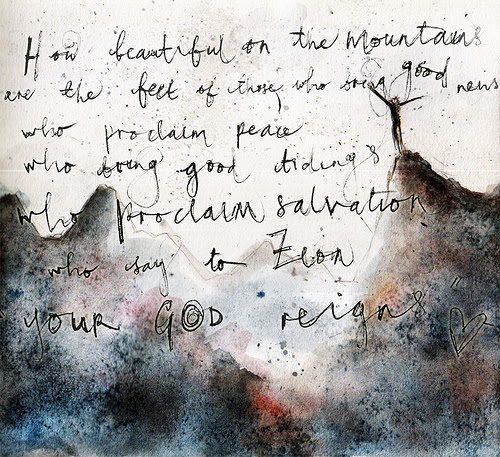 How beautiful on the mountains
are the feet of those, who bring good news
who proclaim peace
who bring good tidings
who proclaim salvation
who say to Zion
"your GOD reigns"